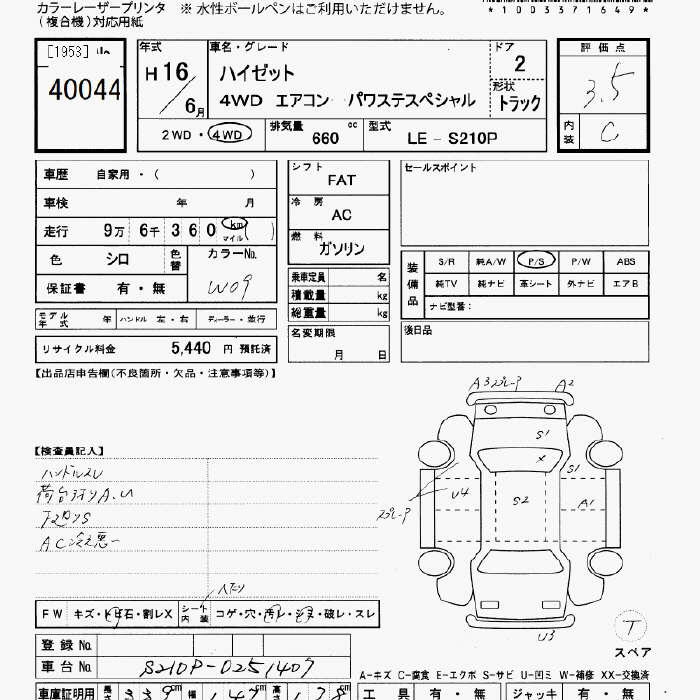 カラーレーザープリンタ ※ 水性ボールペンはご利用いただけません。
(複合機)対応用紙
*1003371649*
[1953]
40044
年式
H 16 / 6 月
車名・グレード
ハイゼット
4WD エアコン パワステスペシャル
ドア
2
形状
トラック
2WD ・ 4WD
排気量 660 cc
型式 LE - S210P
評価点
3.5
内装 C
車歴 自家用 ・ ( )
車検 年 月
走行 9万 6千 3 6 0 km マイル ( )
色 シロ 色替 カラーNo. W09
保証書 有 ・ 無
モデル年式 年 ハンドル 左 ・ 右 ディーラー ・ 並行
リサイクル料金 5,440 円 預託済
シフト
FAT
冷房
AC
燃料
ガソリン
乗車定員 名
積載量 kg
総重量 kg
名変期限
月 日
セールスポイント
装備品
S/R 純A/W P/S P/W ABS
純TV 純ナビ 革シート 外ナビ エアB
ナビ型番:
後日品
【出品店申告欄(不良箇所・欠品・注意事項等)】
【検査員記入】
ハンドルスレ
荷台サビA、U
下廻りS
AC冷え悪い
A3 スプレーP A2
S1
X
S1
U4
S2
A1
スプレーP
U3
T
スペア
FW キズ・トビ石・割レX シート内装 コゲ・穴・汚レ・シミ・破レ・スレ
登録 No.
車台 No. S210P-0251407
A-キズ C-腐食 E-エクボ S-サビ U-凹ミ W-補修 XX-交換済
車庫証明用 長さ 339 cm 幅 147 cm 高さ 178 cm
工具 有 ・ 無 ジャッキ 有 ・ 無